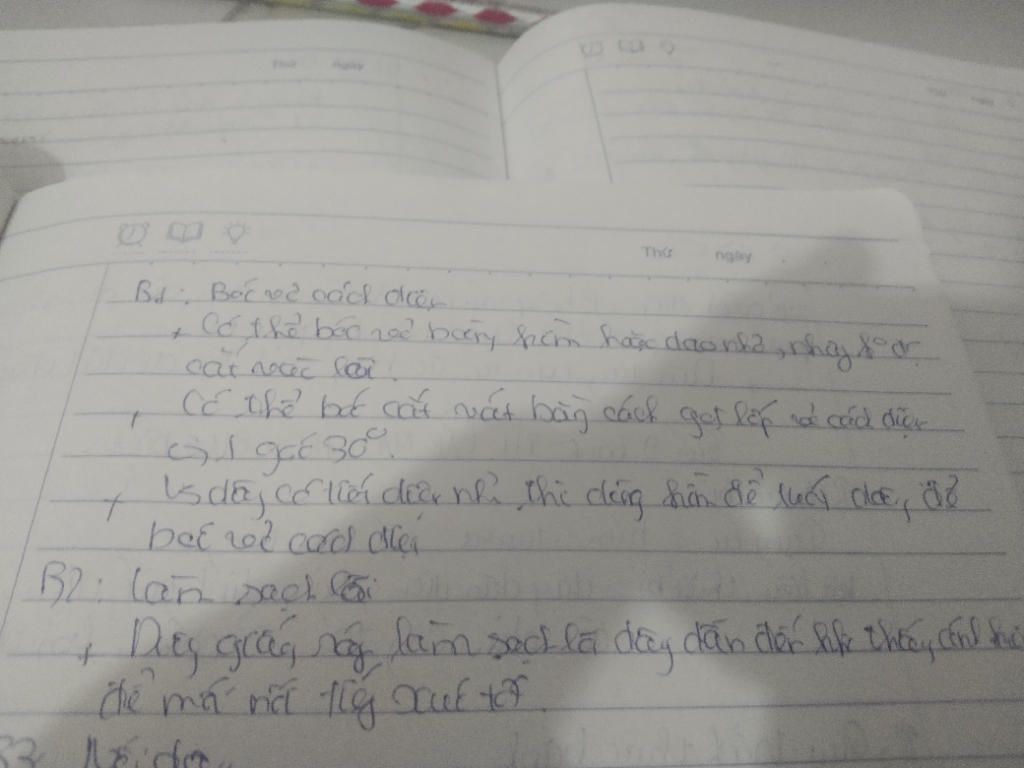 Thứ ngày
Thứ ngày
B1: Bóc vỏ cách điện
+ Có thể bóc vỏ bằng kìm hoặc dao nhỏ,
cắt vào lõi.
+ Có thể bóc cắt vát bằng cách gọt lớp vỏ cách điện
1 góc 30°.
+ Vs dây có tiết diện nhỏ, thì dùng kìm để tuốt dây, để
bóc vỏ cách điện
B2: Làm sạch lõi
+ Dùng giấy ráp làm sạch lõi dây dẫn đến khi thấy ánh kim
để mối nối tiếp xúc tốt.
B3: Nối dây